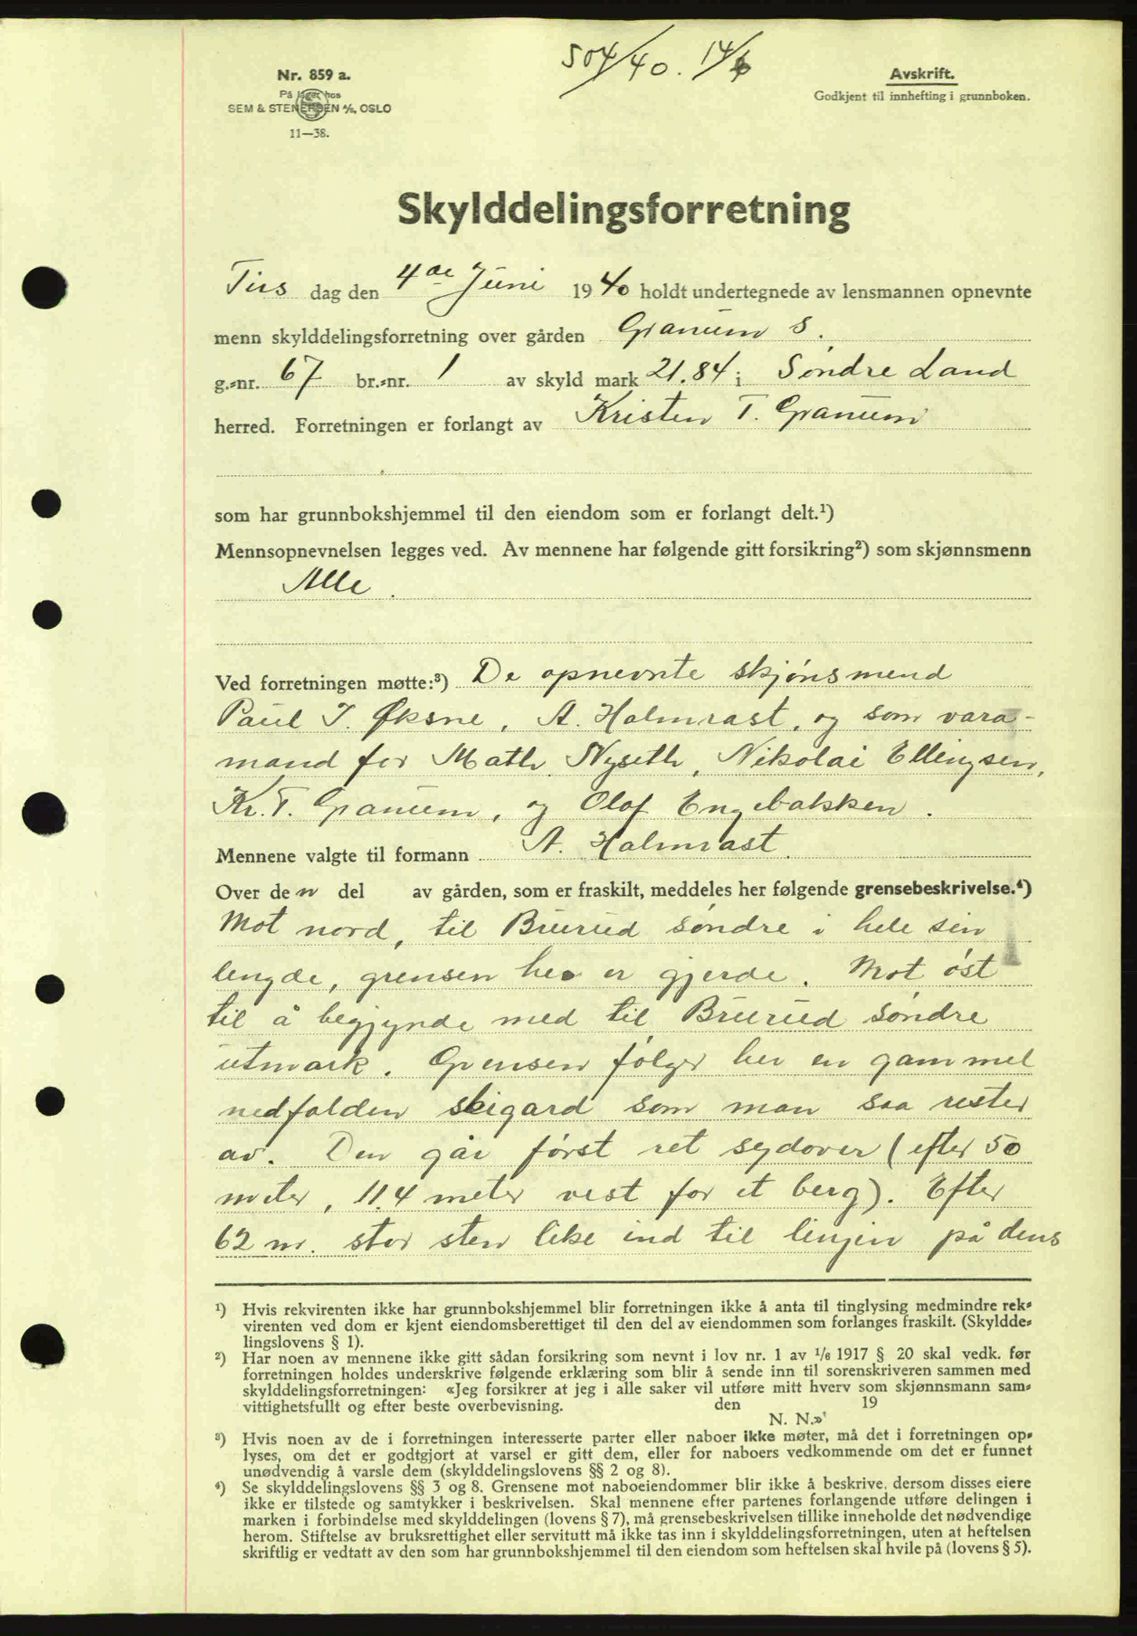 504/40. 14/6
Nr. 859 a.
På lager hos
SEM & STENERSEN A/S, OSLO
11—38.
Avskrift.
Godkjent til innhefting i grunnboken.
Skylddelingsforretning
Tirs dag den 4de Juni 1940 holdt undertegnede av lensmannen opnevnte
menn skylddelingsforretning over gården Granum S.
g.-nr. 67 br.-nr. 1 av skyld mark 21.84 i Søndre Land
herred. Forretningen er forlangt av Kristen T. Granum
som har grunnbokshjemmel til den eiendom som er forlangt delt.¹)
Mennsopnevnelsen legges ved. Av mennene har følgende gitt forsikring²) som skjønnsmenn
Alle.
Ved forretningen møtte:³) De opnevnte skjønsmend
Paul I. Øksne, A. Halmrast, og som vara-
mand for Math. Nyseth, Nikolai Ellingsen,
Kr. T. Granum, og Olaf Engebakken.
Mennene valgte til formann A. Halmrast.
Over den del av gården, som er fraskilt, meddeles her følgende grensebeskrivelse.⁴)
Mot nord, til Brurud søndre i hele sin
lengde, grensen her er gjerde. Mot øst
til å begjynde med til Brurud søndre
utmark. Grensen følger her en gammel
nedfalden skigard som man saa rester
av. Den går først ret sydover (efter 50
meter, 11.4 meter vest for et berg). Efter
62 m. stor sten like ind til linjen på dens
¹) Hvis rekvirenten ikke har grunnbokshjemmel blir forretningen ikke å anta til tinglysing medmindre rek-
virenten ved dom er kjent eiendomsberettiget til den del av eiendommen som forlanges fraskilt. (Skyldde-
lingslovens § 1).
²) Har noen av mennene ikke gitt sådan forsikring som nevnt i lov nr. 1 av 1/6 1917 § 20 skal vedk. før
forretningen holdes underskrive følgende erklæring som blir å sende inn til sorenskriveren sammen med
skylddelingsforretningen: «Jeg forsikrer at jeg i alle saker vil utføre mitt hverv som skjønnsmann sam-
vittighetsfullt og efter beste overbevisning. den 19
N. N.»
³) Hvis noen av de i forretningen interesserte parter eller naboer ikke møter, må det i forretningen op-
lyses, om det er godtgjort at varsel er gitt dem, eller for naboers vedkommende om det er funnet
unødvendig å varsle dem (skylddelingslovens §§ 2 og 8).
⁴) Se skylddelingslovens §§ 3 og 8. Grensene mot naboeiendommer blir ikke å beskrive, dersom disses eiere
ikke er tilstede og samtykker i beskrivelsen. Skal mennene efter partenes forlangende utføre delingen i
marken i forbindelse med skylddelingen (lovens § 7), må grensebeskrivelsen tillike inneholde det nødvendige
herom. Stiftelse av bruksrettighet eller servitutt må ikke tas inn i skylddelingsforretningen, uten at heftelsen
skriftlig er vedtatt av den som har grunnbokshjemmel til den eiendom som heftelsen skal hvile på (lovens § 5).